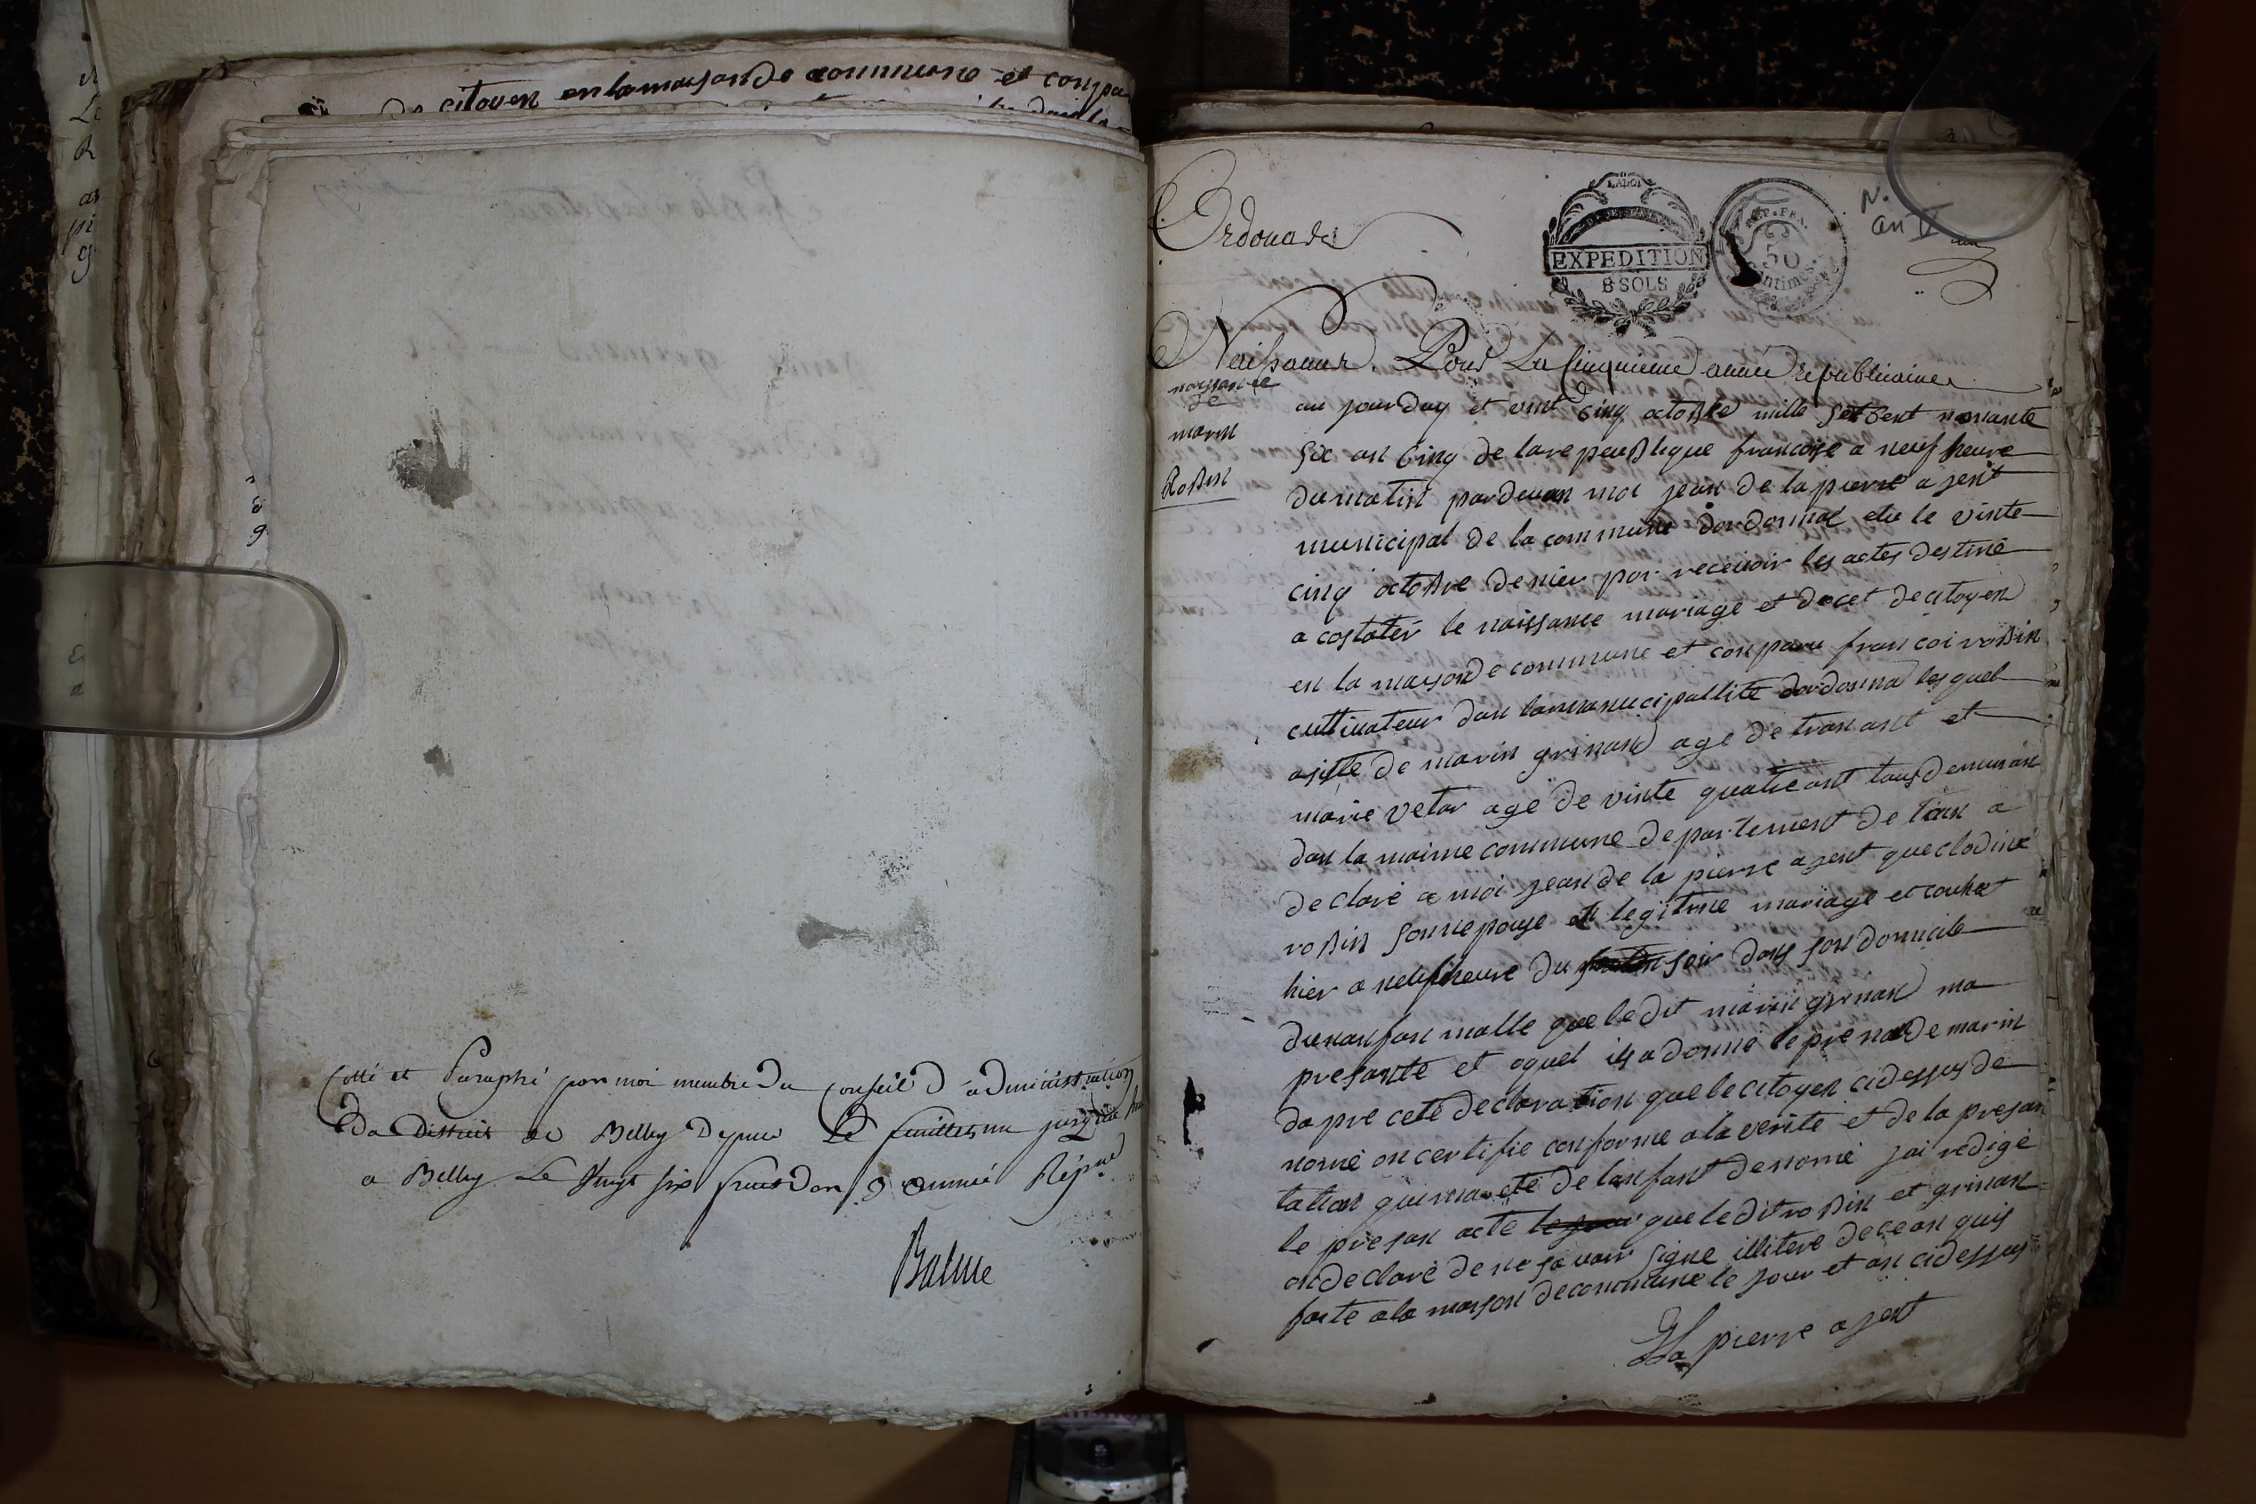 de citoyen en la maison de commune et conpa
Cotté et Paraphé par moi membre du Conseil d'administration
du District de Belley depuis Le feuillet un jusqu'au
a Belley Le Vingt six fructidor 3 année Rép.ne
Balme
Ordonat
L'A LOI
EXPEDITION
8 SOLS
REP. FRA.
50
Centimes
N.
an V
Naissance. Pour La Cinquieme année republicaine
naissance
de
marin
Robin
au jourduy et vint cinq octobre mille set cent nonante
six an cinq de la republique francoise a neuf heure
du matin pardevan moi jean de la pierre ajent
municipal de la commune dordonnat elu le vinte
cinq octobre denier por recevoir les actes destiné
a costater le naissance mariage et decet de citoyen
en la maison de commune et conparu francoi robin
cultivateur dan la municipallite dordonna lesquel
asiste de marin grinand age de tran ant et
marie vetar age de vinte quatre ant tous demuran
dan la maime commune departement de l'ain a
declaré a moi jean de la pierre ajent que clodine
robin sonnepouse en legitime mariage et couhet
hier a neuf heure du soir dans son domicile
dunanfan malle que ledit marin grinan ma
presanté et oquel il a donné le prenon de marin
da pre cete declaration que le citoyen cidessus de
nomé on certifie conforme a la verite et de la presan
tation qui ma ete de lanfant denomé jai redigé
le presan acte que ledit robin et grinan
on declaré de ne savoir signe illitere de ce an quis
faite a la maison de commune le jour et an cidessus
La pierre ajent